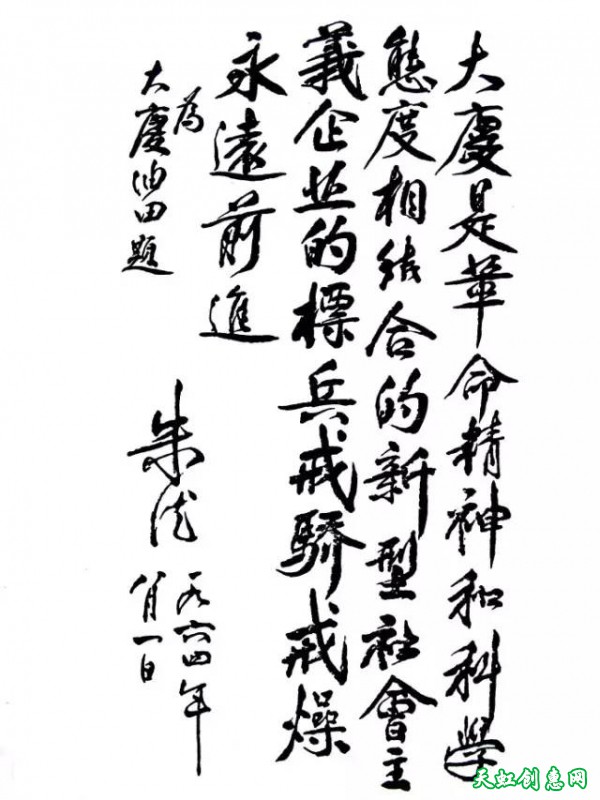 大慶是革命精神和科學
態度相結合的新型社會主
義企业的標兵戒驕戒燥
永遠前進
為
大慶油田題
朱德
一九六四年
八月一日
天虹创惠网